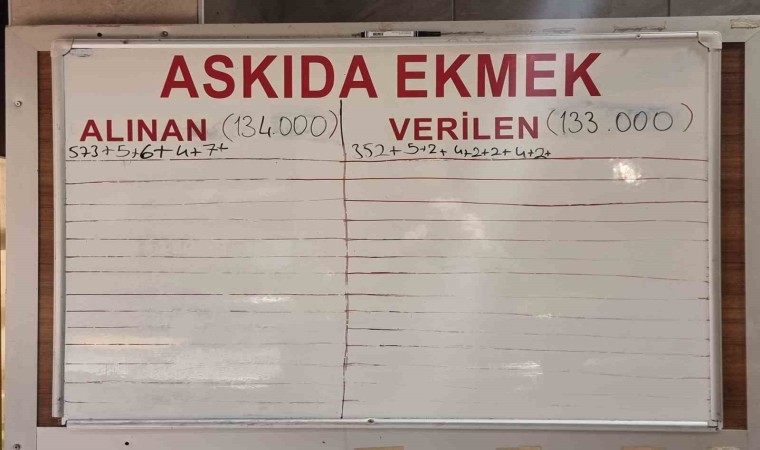 ASKIDA EKMEK
ALINAN (134.000)
VERİLEN (133.000)
573+5+6+4+7+
352+5+2+4+2+2+4+2+